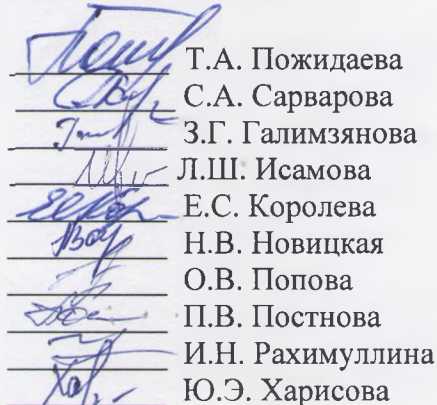 Т.А. Пожидаева
С.А. Сарварова
З.Г. Галимзянова
Л.Ш. Исамова
Е.С. Королева
Н.В. Новицкая
О.В. Попова
П.В. Постнова
И.Н. Рахимуллина
Ю.Э. Харисова